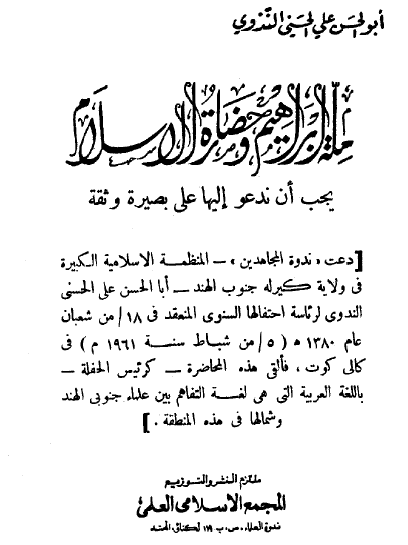 أبو الحسن علي الحسني الندوي
ملة إبراهيم وحضارة الإسلام
يجب أن ندعو إليها على بصيرة وثقة
[ دعت « ندوة المجاهدين » – المنظمة الاسلامية الكبيرة
فى ولاية كيرله جنوب الهند – أبا الحسن على الحسنى
الندوى لرئاسة احتفالها السنوى المنعقد فى ١٨/ من شعبان
عام ١٣٨٠ ه ( ٥/ من شباط سنة ١٩٦١ م ) فى
كالى كوت ، فألقى هذه المحاضرة – كرئيس الحفلة –
باللغة العربية التى هى لغة التفاهم بين علماء جنوبى الهند
وشمالها فى هذه المنطقة . ]
ملتزم النشر والتوزيع
المجمع الاسلامى العلمى
ندوة العلماء، ص، ب ١١٩ لكناؤ، الهند